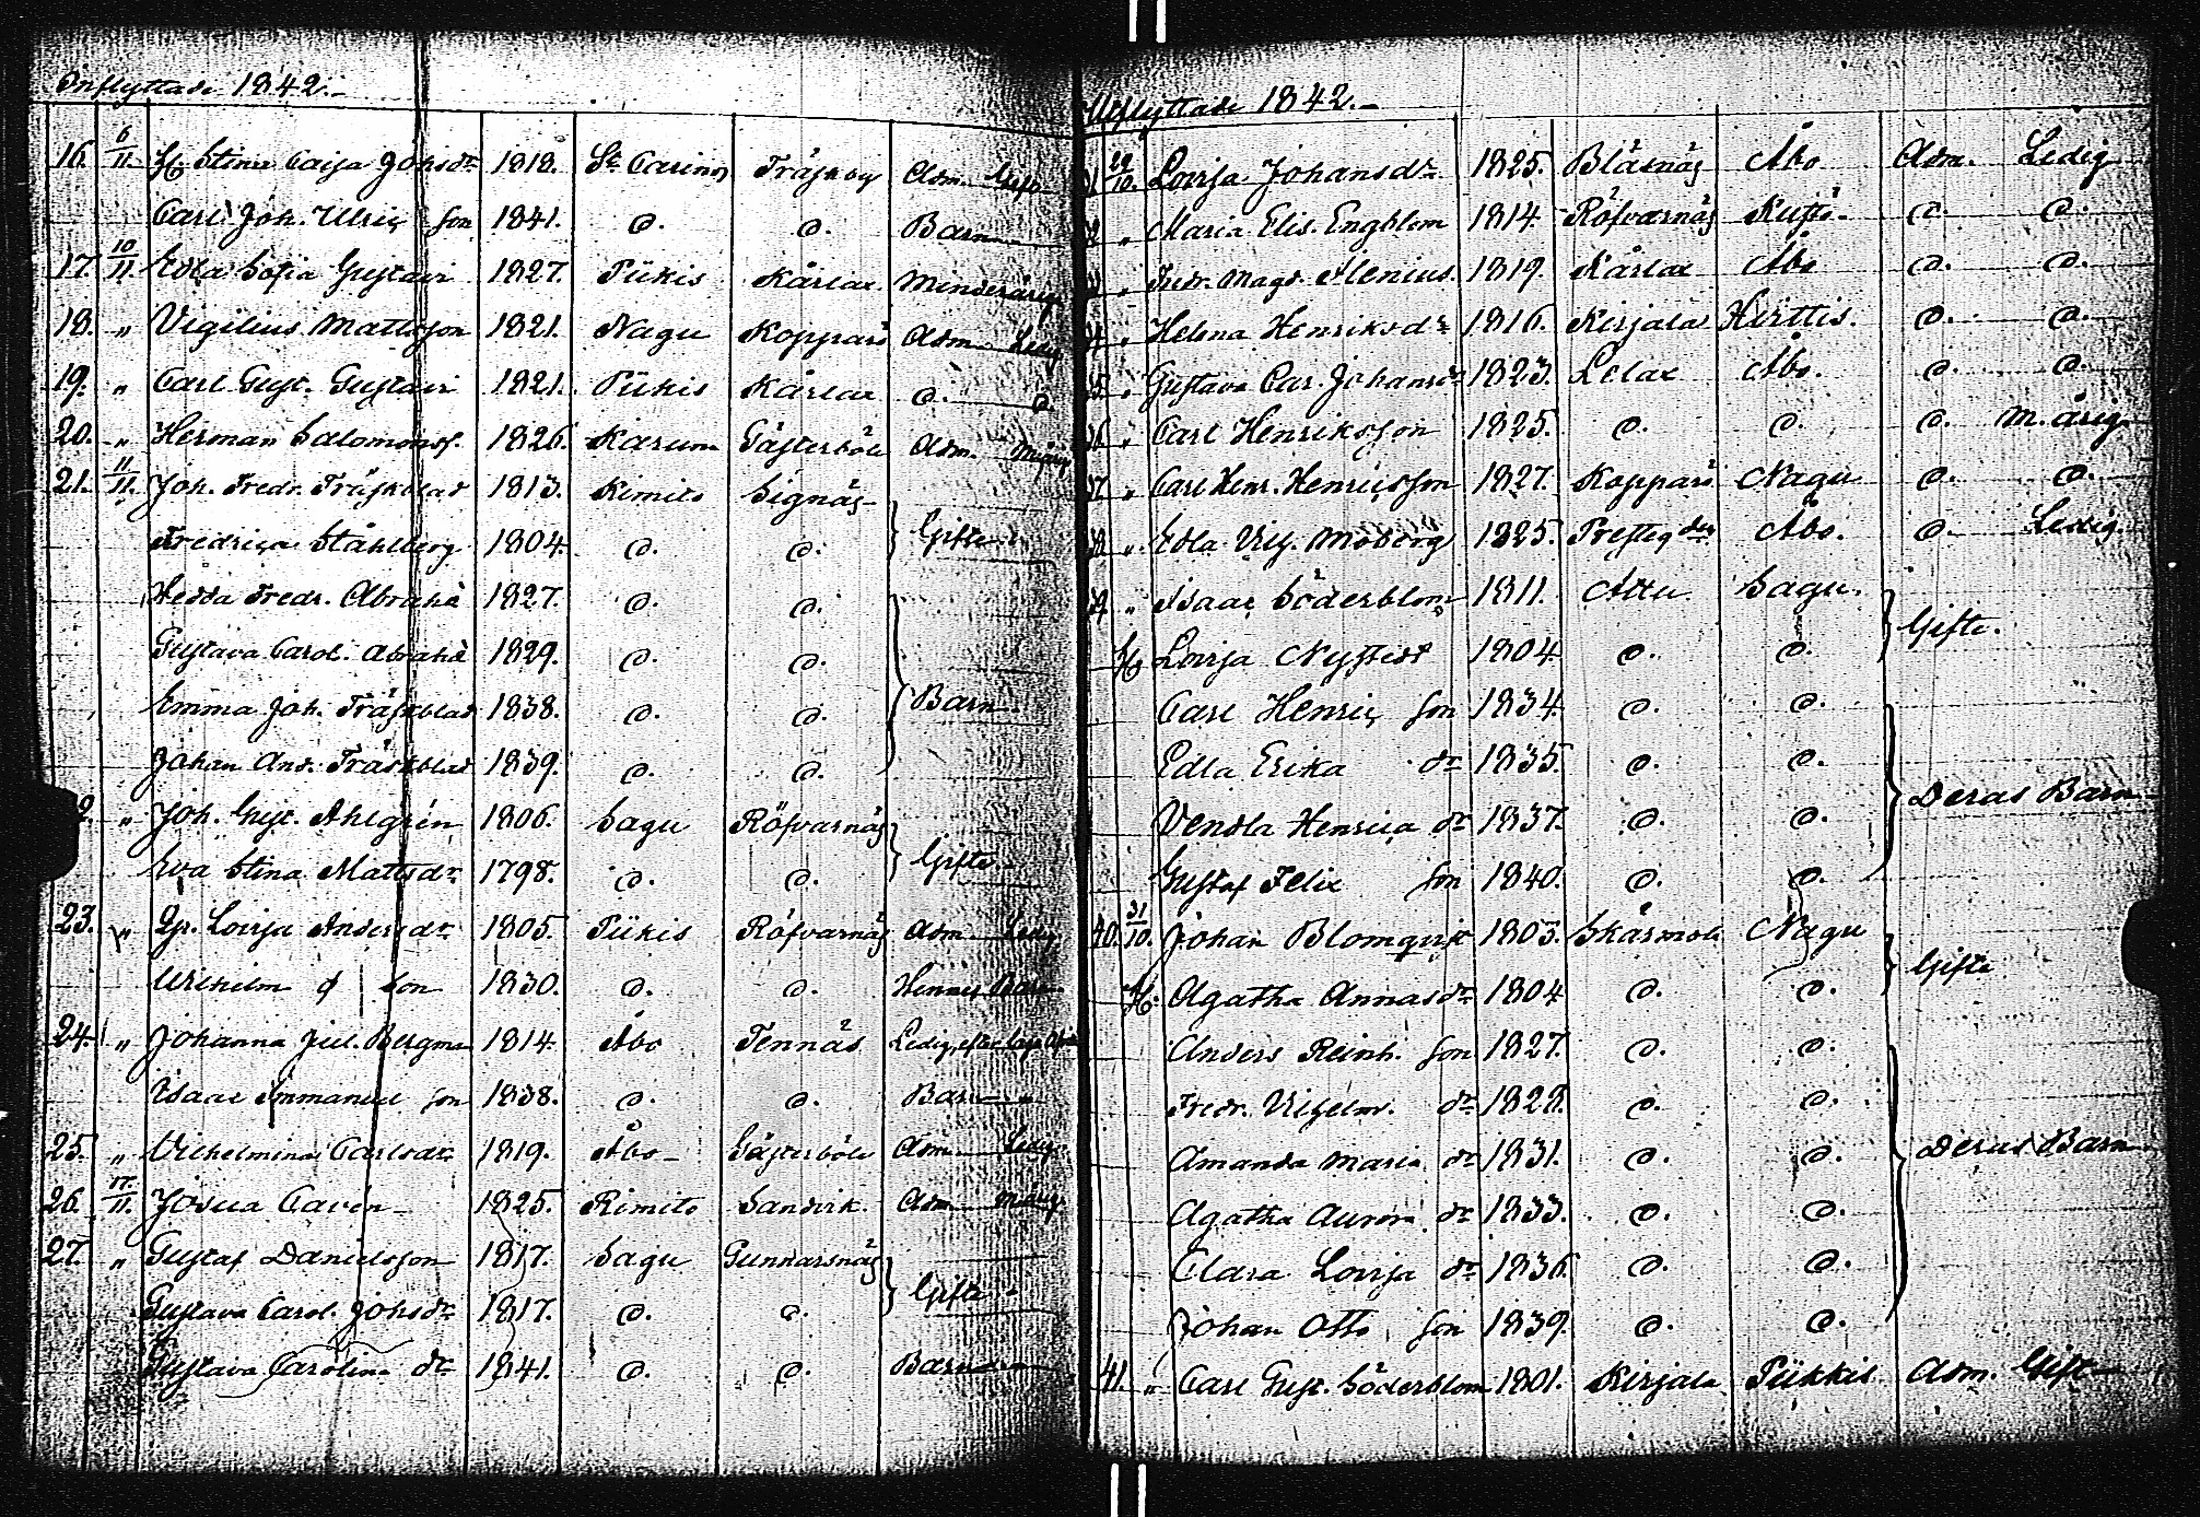 Inflyttade 1842.
16. 6/11. H. Stina Caisa Johsdr 1818. St Carins Träskby Adm. Gift
Carl Joh. Ulric son 1841. d. d. Barn
17. 10/11. Edla Sofia Gustavi 1827. Piikis Kårlax Minderårig
18. " Vigilius Mattsson 1821. Nagu Koppars Adm. Ledig
19. " Carl Gust. Gustavi 1821. Piikis Kårlax d. d.
20. " Herman Salomonss. 1826. Karuna Gästerböle Adm. Mårig
21. 11/11. Joh. Fredr. Träskblad 1813. Kimito Signäs
Fredrica Ståhlberg 1804. d. d. Gifte
Hedda Fredr. Abrahä 1827. d. d.
Gustava Carol. Abrahä 1829. d. d.
Emma Joh. Träskblad 1838. d. d. Barn
Johan And. Träskblad 1839. d. d.
2. " Joh. Gust. Ahlgrén 1806. Sagu Röfvarnäs
Eva Stina Mattsdr 1798. d. d. Gifte
23. " Lovisa Andersdr 1805. Piikis Röfvarnäs Adm Ledig
Wilhelm son 1830. d. d. Hennes Barn
24. " Johanna Jul. Bergman 1814. Åbo Tennäs Ledig, efter
Isaac Immanuel son 1838. d. d. Barn
25. " Vilhelmina Carlsdr 1819. Åbo Gästerböle Adm. Ledig
26. 17/11. Josua Cavén 1825. Kimito Sandvik. Adm Mårig
27. " Gustaf Danielsson 1817. Sagu Gunnarsnäs
Gustava Carol. Johsdr 1817. d. d. Gifte
Gustava Carolina dr 1841. d. d. Barn
Utflyttade 1842.
31 29/10. Lovisa Johansdr 1825. Bläsnäs Åbo Adm. Ledig
32 " Maria Elis. Engblom 1814. Röfvarnäs Kustö d. d.
33 " Fredr. Magd. Alenius. 1819. Kårlax Åbo d. d.
34 " Helena Henriksdr 1816. Kirjala Hiittis. d. d.
35 " Gustava Car. Johansdr 1823. Lelax Åbo. d. d.
36 " Carl Henriksson 1825. d. d. d. M.årig
37 " Carl Henr. Henricsson 1827. Koppars Nagu d. d.
38 " Edla Vilh. Moberg 1825. Presteg den Åbo. d. Ledig
39 " Isaac Söderblom 1811. Attu Sagu.
H. Lovisa Nystedt 1804 d. d. Gifte.
Carl Henric son 1834. d. d.
Edla Erika dr 1835. d. d.
Vendla Henrica dr 1837. d. d. Deras Barn
Gustaf Felix son 1840. d. d.
40. 31/10. Johan Blomqvist 1803. Skärmola Nagu
H. Agatha Annasdr 1804 d. d. Gifte
Anders Reinh. son 1827. d. d.
Fredr. Vilhelm. dr 1828. d. d.
Amanda Maria dr 1831. d. d. Deras Barn
Agatha Aurora dr 1833. d. d.
Clara Lovisa dr 1836. d. d.
Johan Otto son 1839. d. d.
41. " Carl Gust. Söderblom 1801. Kirjala Piikkis. Adm. Gift